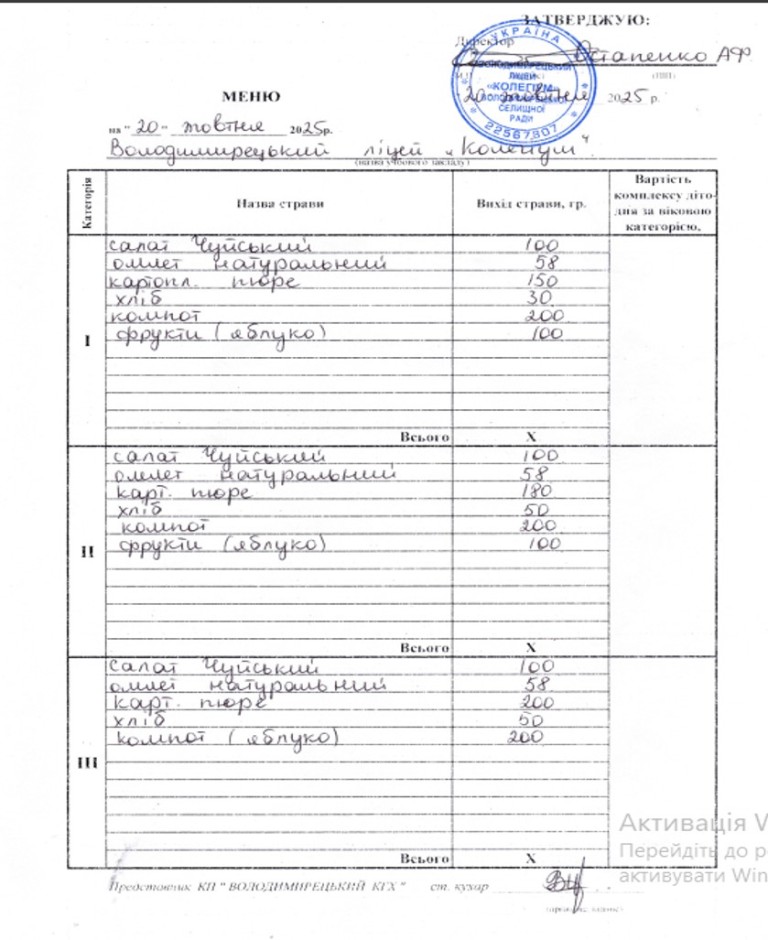 ЗАТВЕРДЖУЮ:
Директор
Остапенко АФ
(ПІП)
20 жовтня 2025 р.
УКРАЇНА
ВОЛОДИМИРЕЦЬКИЙ
ЛІЦЕЙ
«КОЛЕГІУМ»
ВОЛОДИМИРЕЦЬКОЇ
СЕЛИЩНОЇ
РАДИ
22567307
МЕНЮ
на " 20 " жовтня 2025р.
Володимирецький ліцей „Колегіум"
(назва учбового закладу)
Категорія
Назва страви
Вихід страви, гр.
Вартість
комплексу діто-
дня за віковою
категорією.
I
салат Чуйський 100
омлет натуральний 58
картопл. пюре 150
хліб 30
компот 200
фрукти (яблуко) 100
Всього X
II
салат Чуйський 100
омлет натуральний 58
карт. пюре 180
хліб 50
компот 200
фрукти (яблуко) 100
Всього X
III
салат Чуйський 100
омлет натуральний 58
карт. пюре 200
хліб 50
компот (яблуко) 200
Всього X
Представник КП " ВОЛОДИМИРЕЦЬКИЙ КГХ " ст. кухар
Активація
Перейдіть до
активувати Win